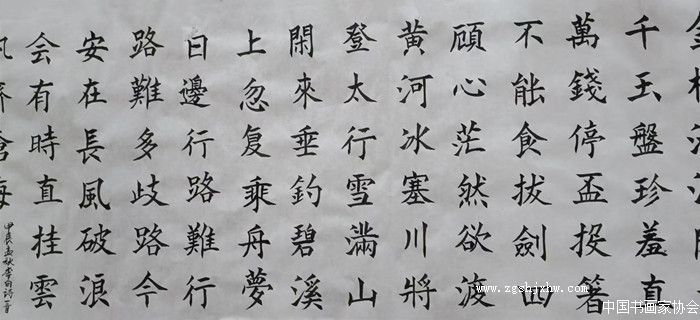 千玉盤珍羞直
萬錢停盃投箸
不能食拔劍四
顧心茫然欲渡
黄河冰塞川將
登太行雪滿山
閑來垂釣碧溪
上忽复乘舟夢
日邊行路難行
路難多歧路今
安在長風破浪
会有時直挂雲
甲辰孟秋李白诗一首
www.zgshjxhw.com
中国书画家协会